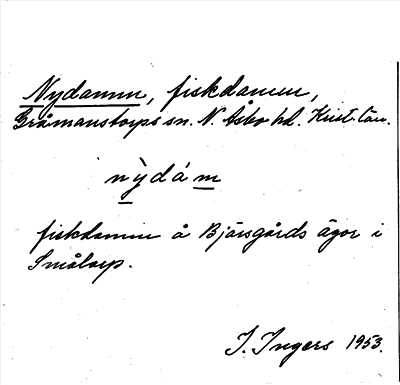 Nydamm, fiskdamm,
Gråmanstorps sn. N. Åsbo hd. Krist. län.
nỳdám
fiskdamm å Bjärsgårds ägor i
Smålarp.
I. Ingers 1953.